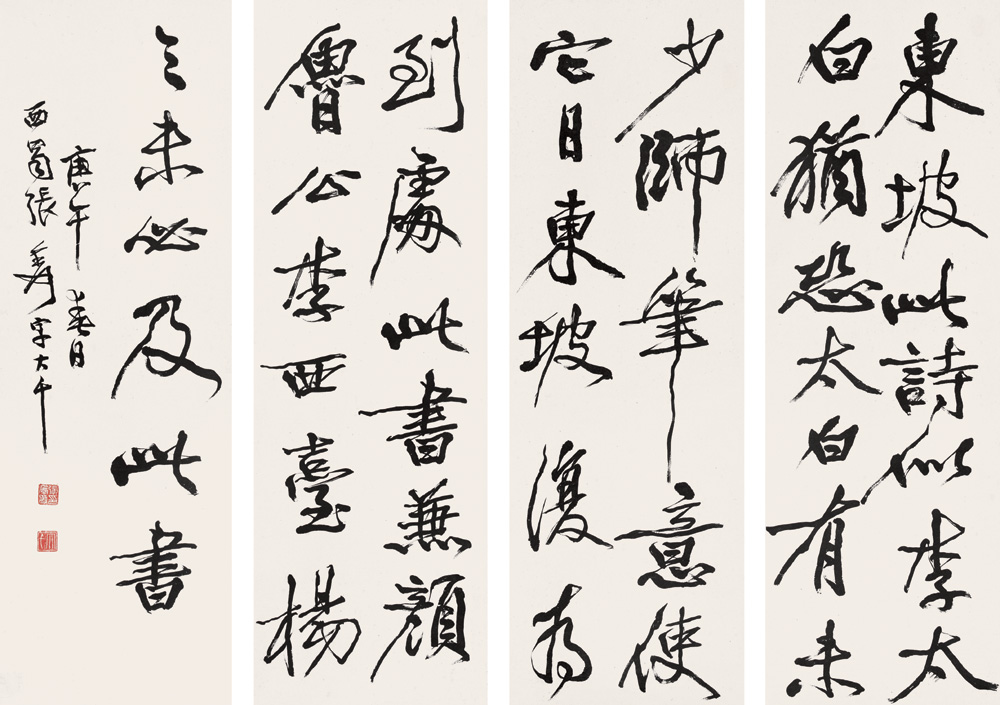 東坡此詩似李太
白猶恐太白有未
少師筆意使
它日東坡復為
到處此書兼顏
魯公李西臺楊
之未必及此書
庚午春日
西蜀張爰字大千